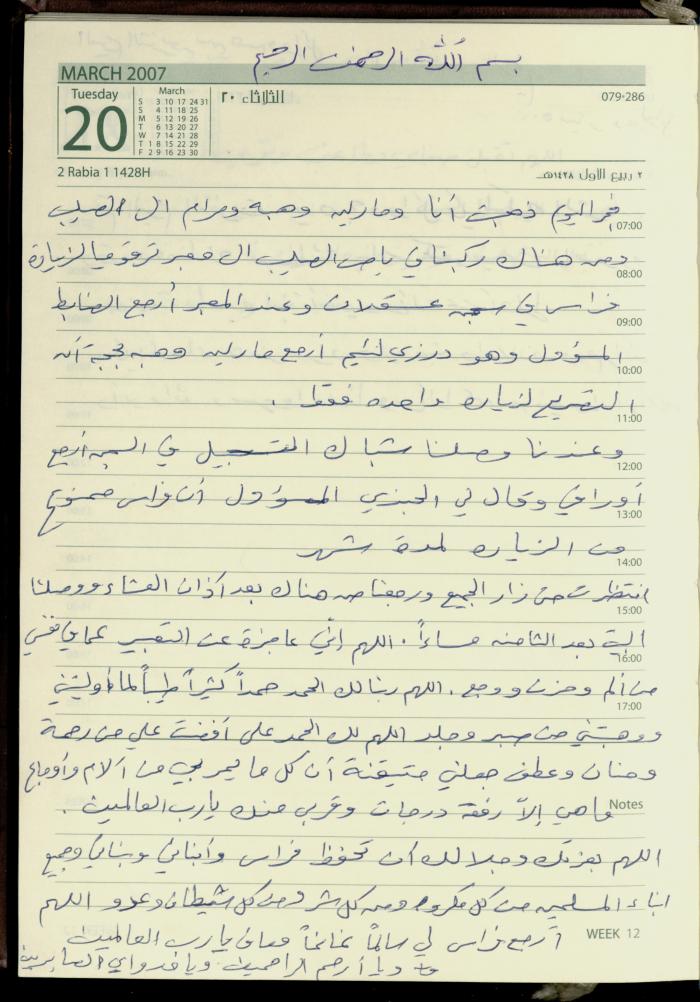 بسم الله الرحمن الرحيم
MARCH 2007
Tuesday
20
March
S 3 10 17 24 31
S 4 11 18 25
M 5 12 19 26
T 6 13 20 27
W 7 14 21 28
T 1 8 15 22 29
F 2 9 16 23 30
الثلاثاء ٢٠
079-286
2 Rabia 1 1428H
٢ ربيع الأول ١٤٢٨هـ
فجر اليوم ذهبت أنا ومارلين وهبة ومرام ال الصليب
07:00
ومن هناك ركبنا في باص الصليب ال معبر ترقوميا لزيارة
08:00
فراس في سجن عسقلان وعند المعبر أرجع الضابط
09:00
المسؤول وهو درزي لئيم أرجع مارلين وهبه بحجة أنه
10:00
التصريح لزياره واحده فقط .
11:00
وعندنا وصلنا شباك التسجيل في السجن أرجع
12:00
أوراقي وقال لي الجندي المسؤول أن فراس ممنوع
13:00
من الزياره لمدة شهر
14:00
انتظرت من زار الجميع ورجعنا من هناك بعد أذان العشاء ووصلنا
15:00
البيت بعد الثامنه مساءاً . اللهم إنّي عاجزة عن التعبير عما في نفسي
16:00
من ألم وحزن ووجع . اللهم ربنا لك الحمد حمداً كثيراً طيباً لما أوليتني
17:00
ووهبتني من صبر وجلد اللهم لك الحمد على أفضت علي من رحمة
وحنان وعطف جعلني متيقنة أن كل ما يمر بي من آلام وأوجاع
Notes
ما هي إلاّ رفعة درجات وقربى منك يا رب العالمين .
اللهم بعزتك وجلالك أن تحفظ فراس وأبنائي وبناتي وجميع
ابناء المسلمين من كل مكروه ومن كل شر ومن كل شيطان وعدو اللهم
أرجع فراس لي سالماً غانماً معافى يا رب العالمين
WEEK 12
ويا أرحم الراحمين ويا الصابرين